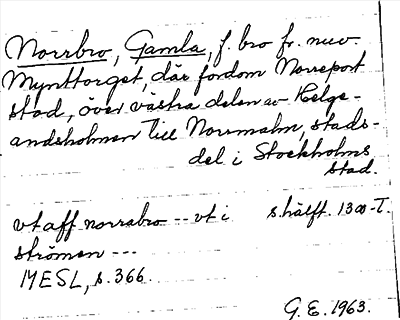 Norrbro, Gamla, f. bro fr. nuv.
Mynttorget, där fordom Norreport
stod, över västra delen av Helge-
andsholmen till Norrmalm, stads-
del i Stockholms
stad.
vt aff norrabro -- vt i s. hälft. 1300-T.
strömen ---
MESL, s. 366
G. E. 1963.